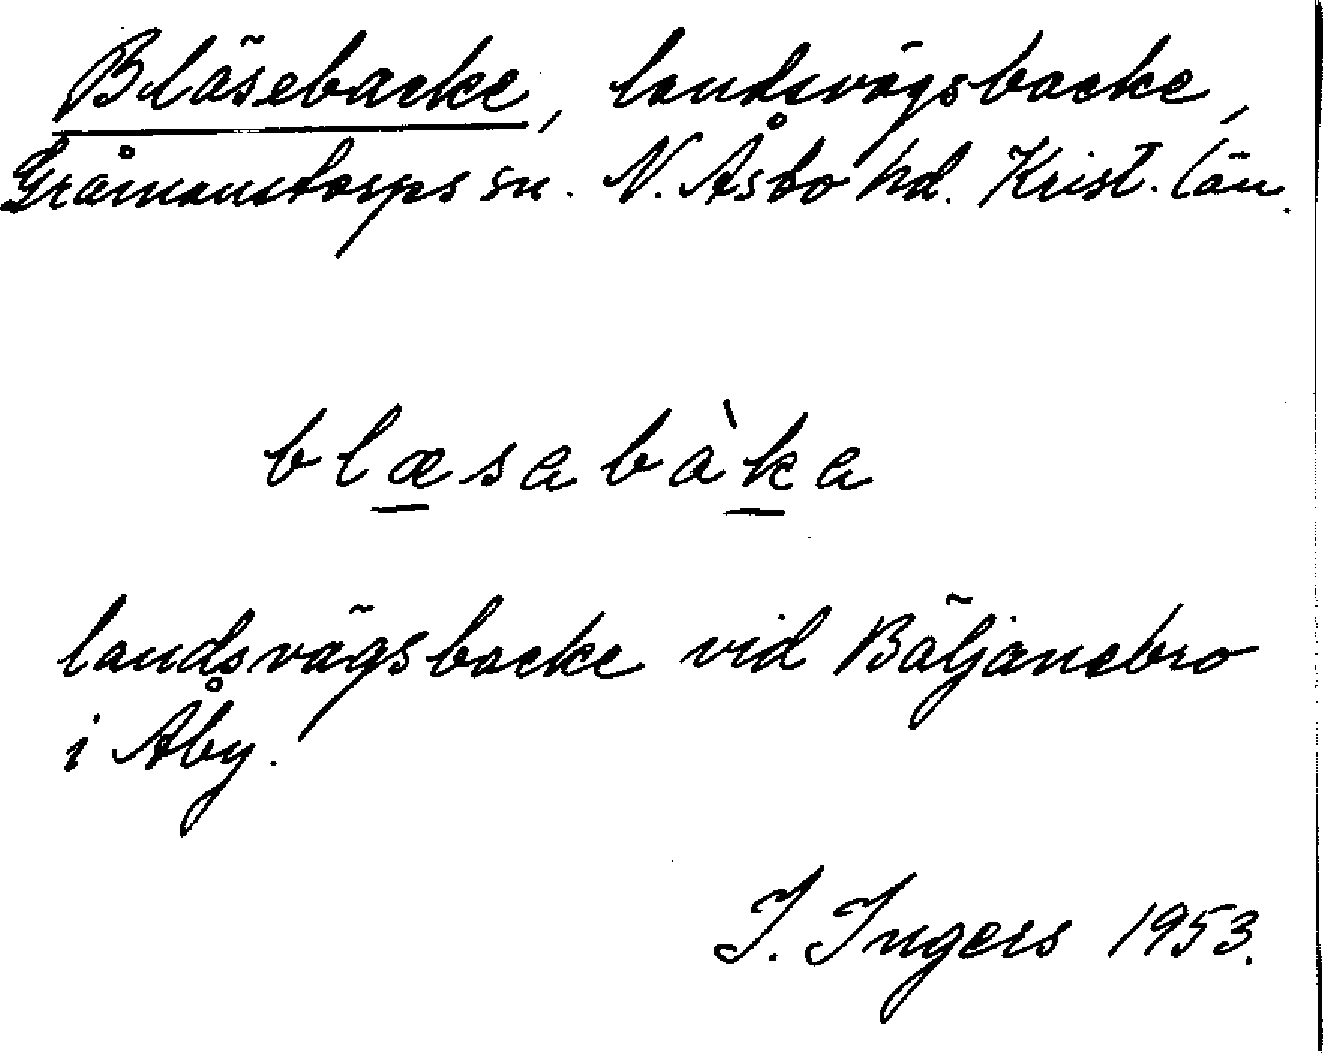 Bläsebacke, landsvägsbacke,
Gråmanstorps sn. N. Åsbo hd. Krist. län.
blæsabàka
landsvägsbacke vid Bäljanebro
i Åby.
I. Ingers 1953.